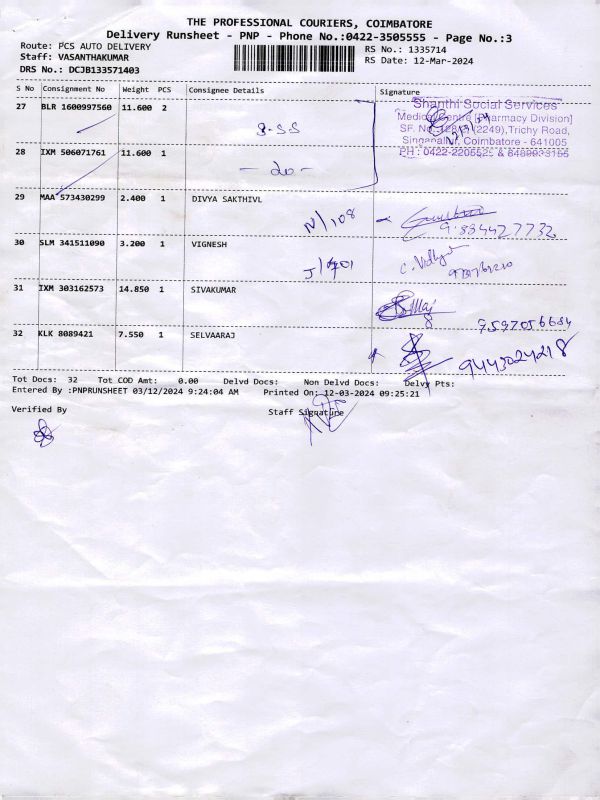 THE PROFESSIONAL COURIERS, COIMBATORE
Delivery Runsheet - PNP - Phone No.:0422-3505555 - Page No.:3
Route: PCS AUTO DELIVERY
RS No.: 1335714
Staff: VASANTHAKUMAR
RS Date: 12-Mar-2024
DRS No.: DCJB133571403
S No Consignment No Weight PCS Consignee Details Signature
27 BLR 1600997560 11.600 2
Shanthi Social Services
Medical Centre [Pharmacy Division]
(2249),Trichy Road,
Singanallur, Coimbatore - 641005
S-SS
28 IXM 506071761 11.600 1
- do -
29 MAA 573430299 2.400 1 DIVYA SAKTHIVL
N/108
30 SLM 341511090 3.200 1 VIGNESH
31 IXM 303162573 14.850 1 SIVAKUMAR
32 KLK 8089421 7.550 1 SELVAARAJ
9443024218
Tot Docs: 32 Tot COD Amt: 0.00 Delvd Docs: Non Delvd Docs: Delvy Pts:
Entered By :PNPRUNSHEET 03/12/2024 9:24:04 AM Printed On: 12-03-2024 09:25:21
Verified By Staff Signature